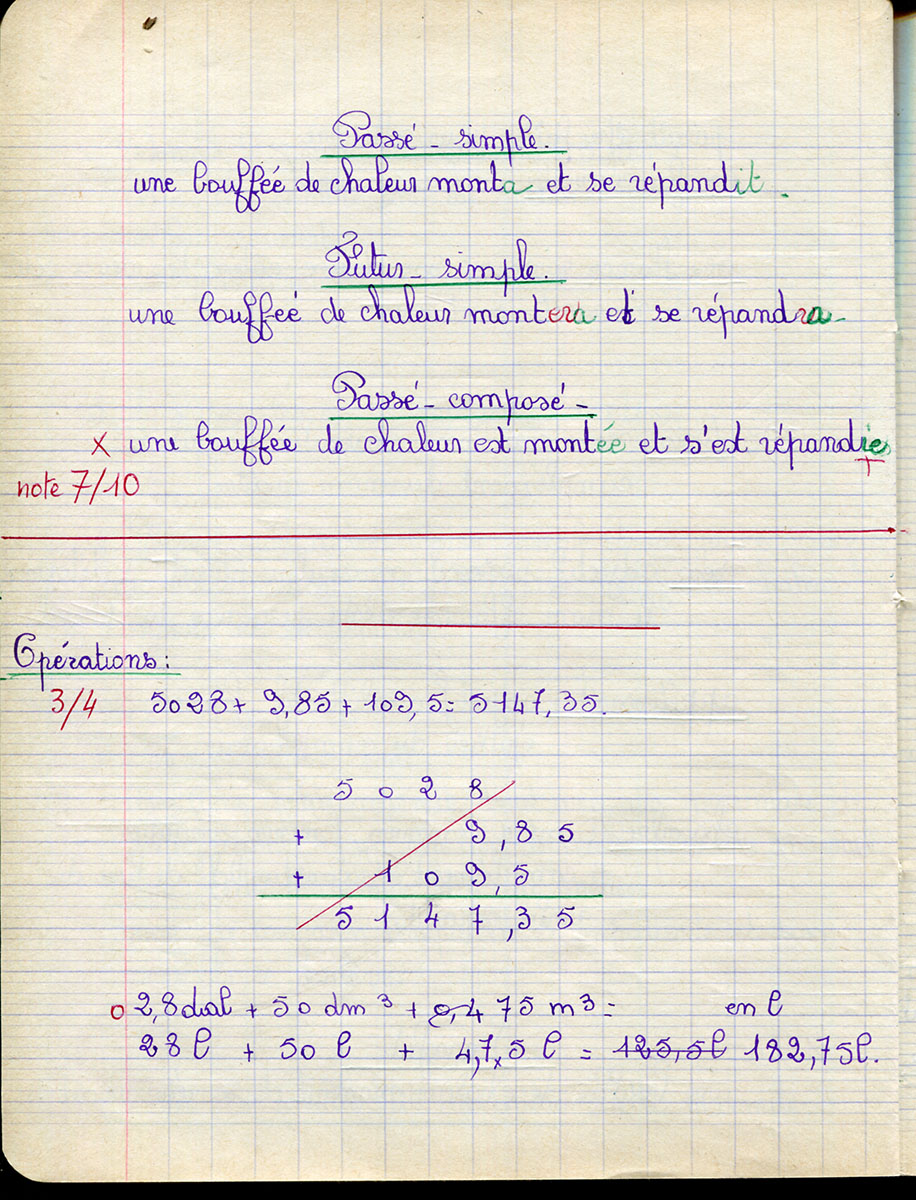 Passé - simple.
une bouffée de chaleur monta et se répandit.
Futur - simple.
une bouffée de chaleur montera et se répandra.
Passé - composé -
x une bouffée de chaleur est montée et s'est répandie
note 7/10
Opérations :
3/4 5028 + 9,85 + 109,5 = 5147,35.
5028
+ 9,85
+ 109,5
5147,35
0 2,8 dal + 50 dm³ + 0,475 m³ = en l
28 l + 50 l + 4,7,5 l = 125,5l 182,75l.